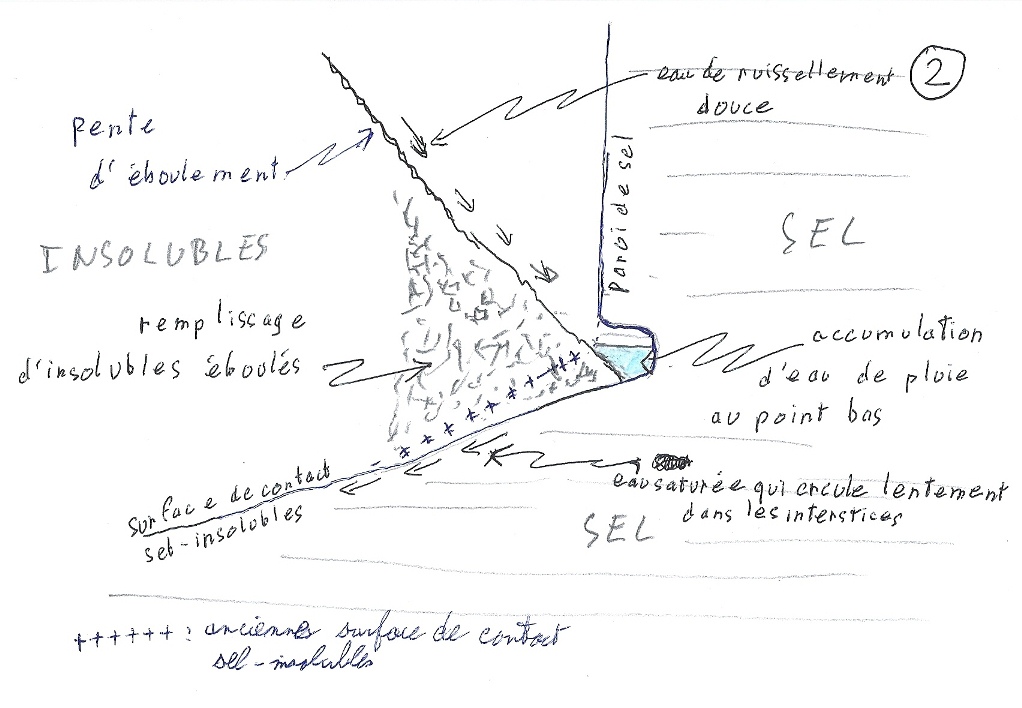 eau de ruissellement
douce
2
pente
d'éboulement
Paroi de sel
SEL
INSOLUBLES
remplissage
d'insolubles éboulés
accumulation
d'eau de pluie
au point bas
eau saturée qui circule lentement
dans les interstices
surface de contact
sel-insolubles
SEL
++++++ : anciennes surface de contact
sel-insolubles